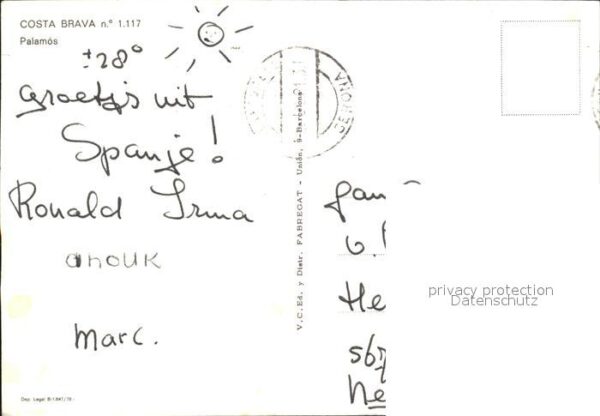 COSTA BRAVA n.º 1.117
Palamós
± 28°
Groetjes uit
Spanje!
Ronald Irma
anouk
Marc.
V. C. Ed. y Distr. FABREGAT - Unión, 9-Barcelona
GERONA
fam
6.
He
privacy protection
Datenschutz
Dep. Legal B-1.847/78.-